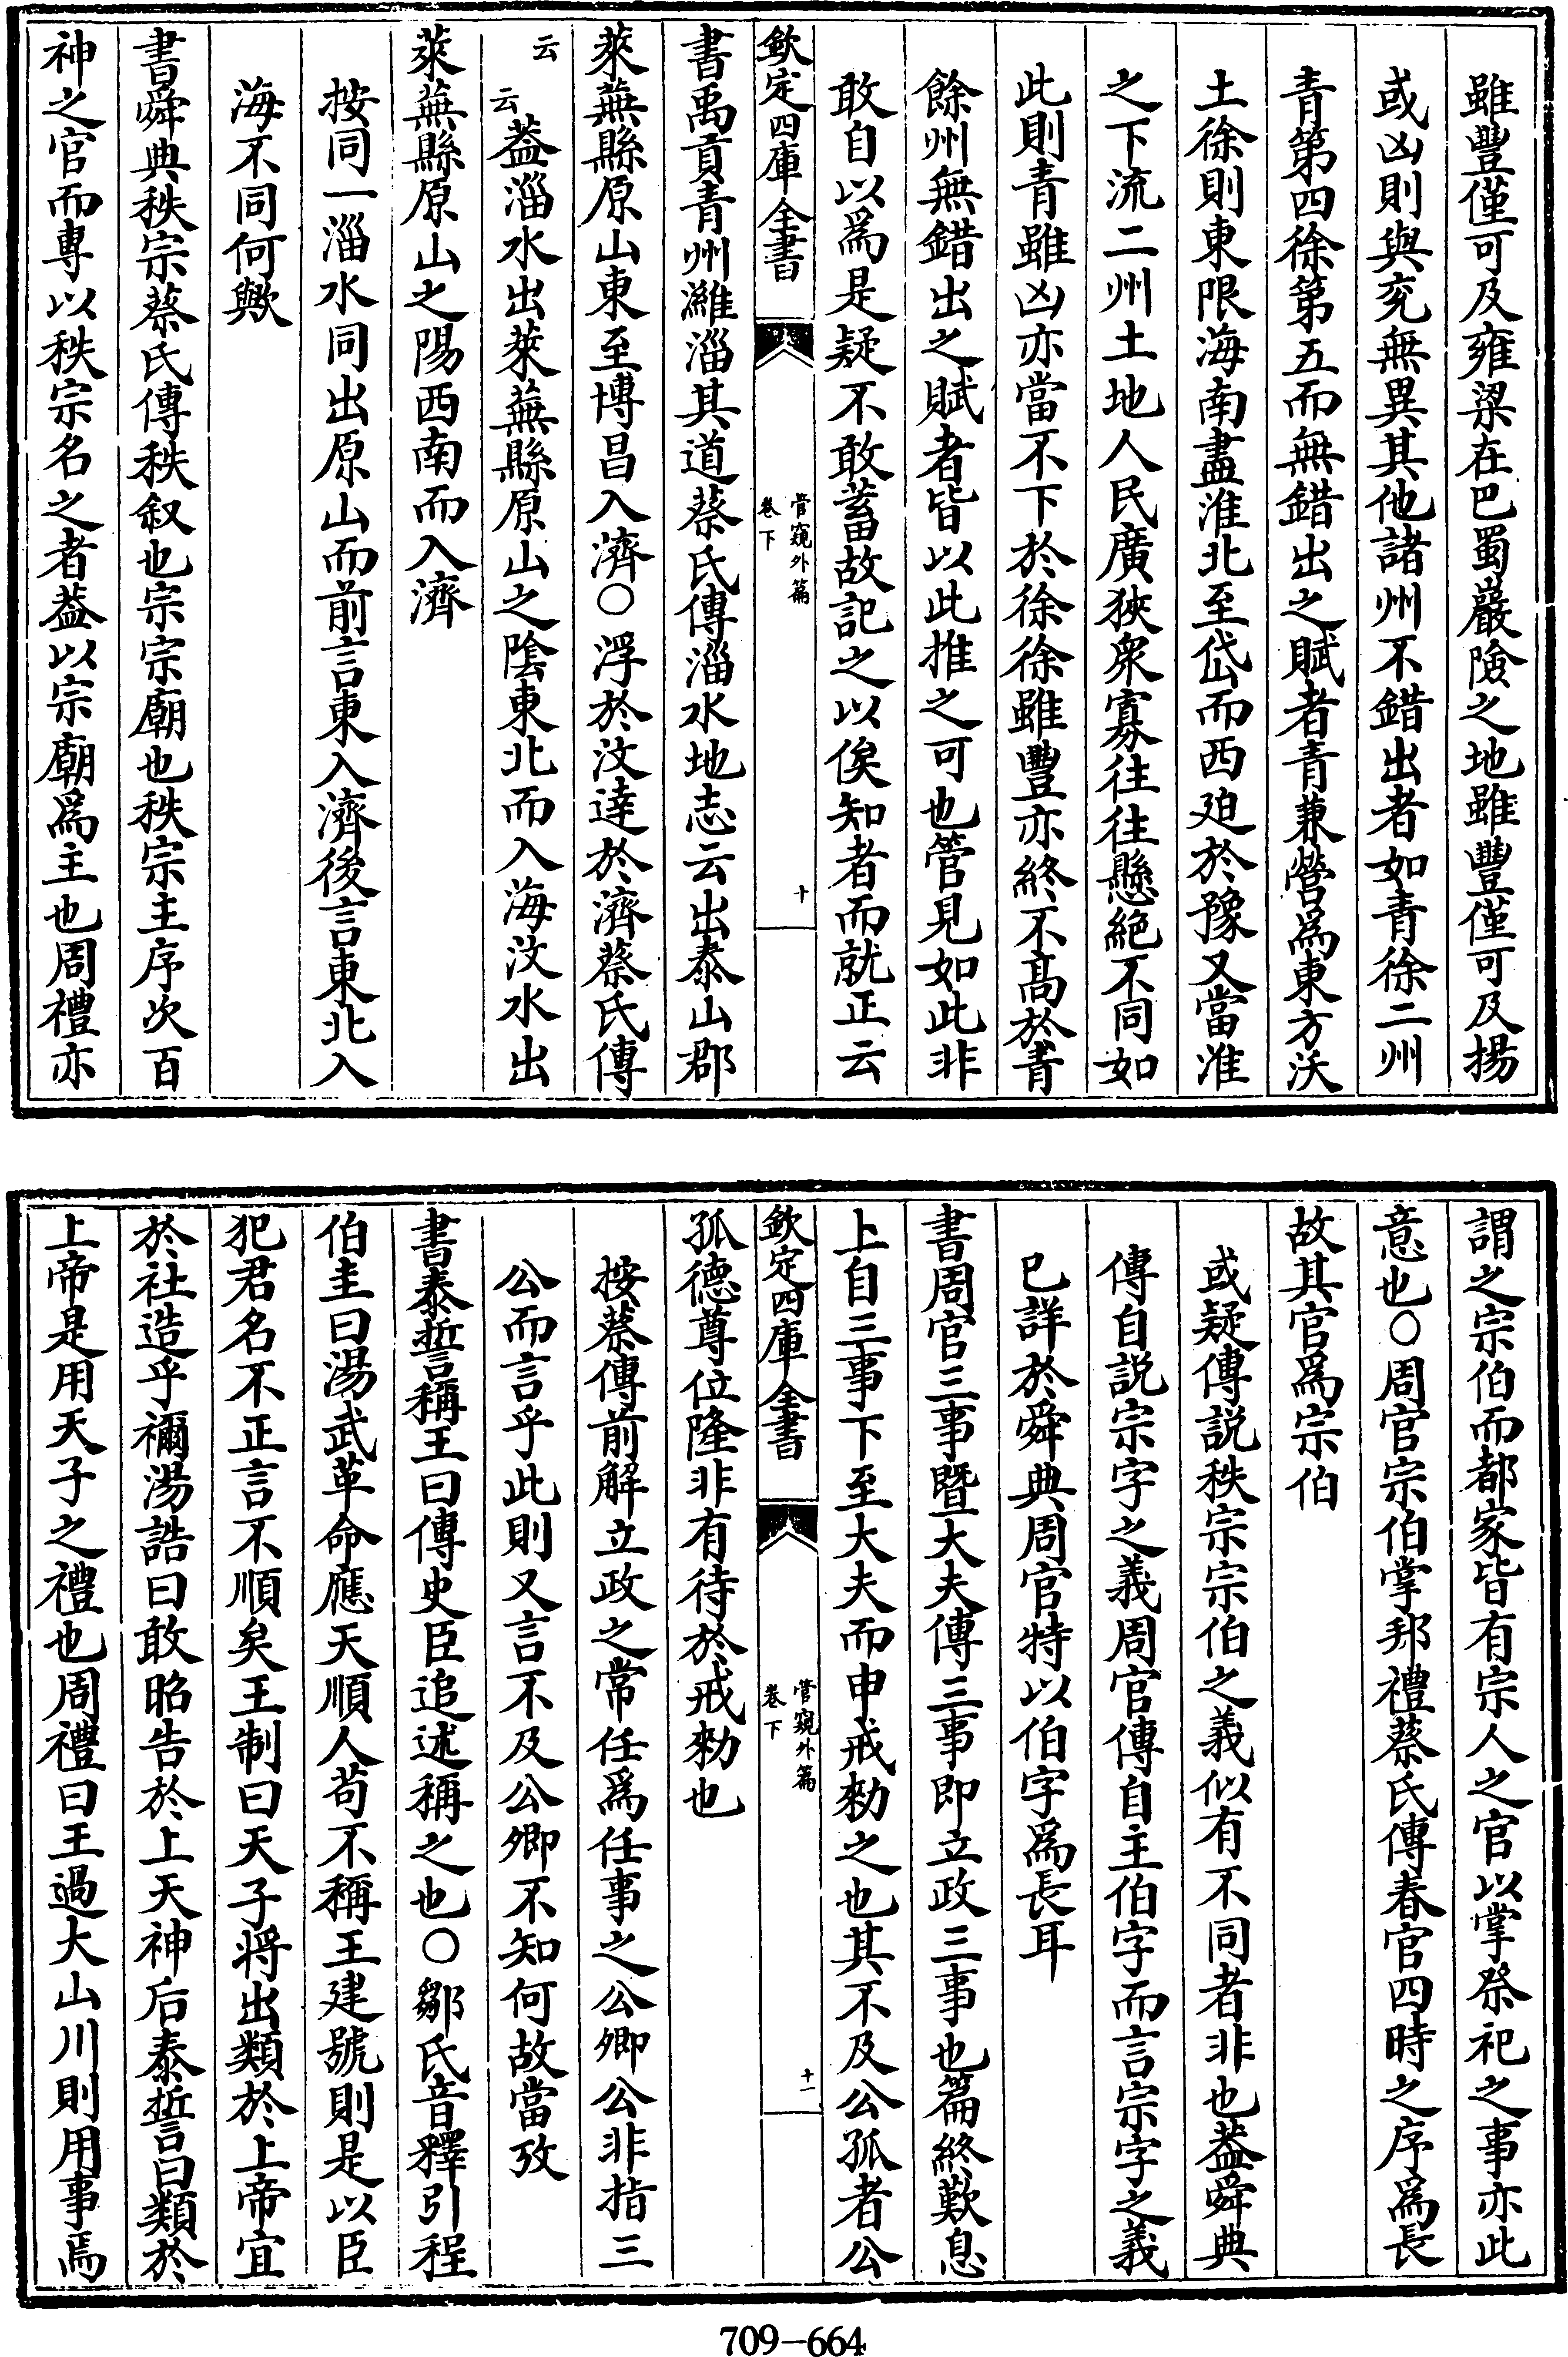 雖豐僅可及雍梁在巴蜀巖險之地雖豐僅可及揚
或凶則與兖無異其他諸州不錯出者如青徐二州
青第四徐第五而無錯出之賦者青兼營為東方沃
土徐則東限海南盡淮北至岱而西廹於豫又當淮
之下流二州土地人民廣狹衆寡往往懸絶不同如
此則青雖凶亦當不下於徐徐雖豐亦終不髙於青
餘州無錯出之賦者皆以此推之可也管見如此非
敢自以為是疑不敢蓄故記之以俟知者而就正云
欽定四庫全書
管窺外篇
卷下
十
書禹貢青州濰淄其道蔡氏傳淄水地志云出泰山郡
萊蕪縣原山東至博昌入濟○浮於汶達於濟蔡氏傳
云云葢淄水出萊蕪縣原山之陰東北而入海汶水出
萊蕪縣原山之陽西南而入濟
按同一淄水同出原山而前言東入濟後言東北入
海不同何歟
書舜典秩宗蔡氏傳秩叙也宗宗廟也秩宗主序次百
神之官而專以秩宗名之者葢以宗廟為主也周禮亦
謂之宗伯而都家皆有宗人之官以掌祭祀之事亦此
意也○周官宗伯掌邦禮蔡氏傳春官四時之序為長
故其官為宗伯
或疑傳説秩宗宗伯之義似有不同者非也葢舜典
傳自説宗字之義周官傳自主伯字而言宗字之義
已詳於舜典周官特以伯字為長耳
書周官三事暨大夫傳三事即立政三事也篇終歎息
上自三事下至大夫而申戒勑之也其不及公孤者公
欽定四庫全書
管窺外篇
卷下
十一
孤德尊位隆非有待於戒勑也
按蔡傳前解立政之常任為任事之公卿公非指三
公而言乎此則又言不及公卿不知何故當攷
書泰誓稱王曰傳史臣追述稱之也○鄒氏音釋引程
伯圭曰湯武革命應天順人苟不稱王建號則是以臣
犯君名不正言不順矣王制曰天子將出類於上帝宜
於社造乎禰湯誥曰敢昭告於上天神后泰誓曰類於
上帝是用天子之禮也周禮曰王過大山川則用事焉
709-664